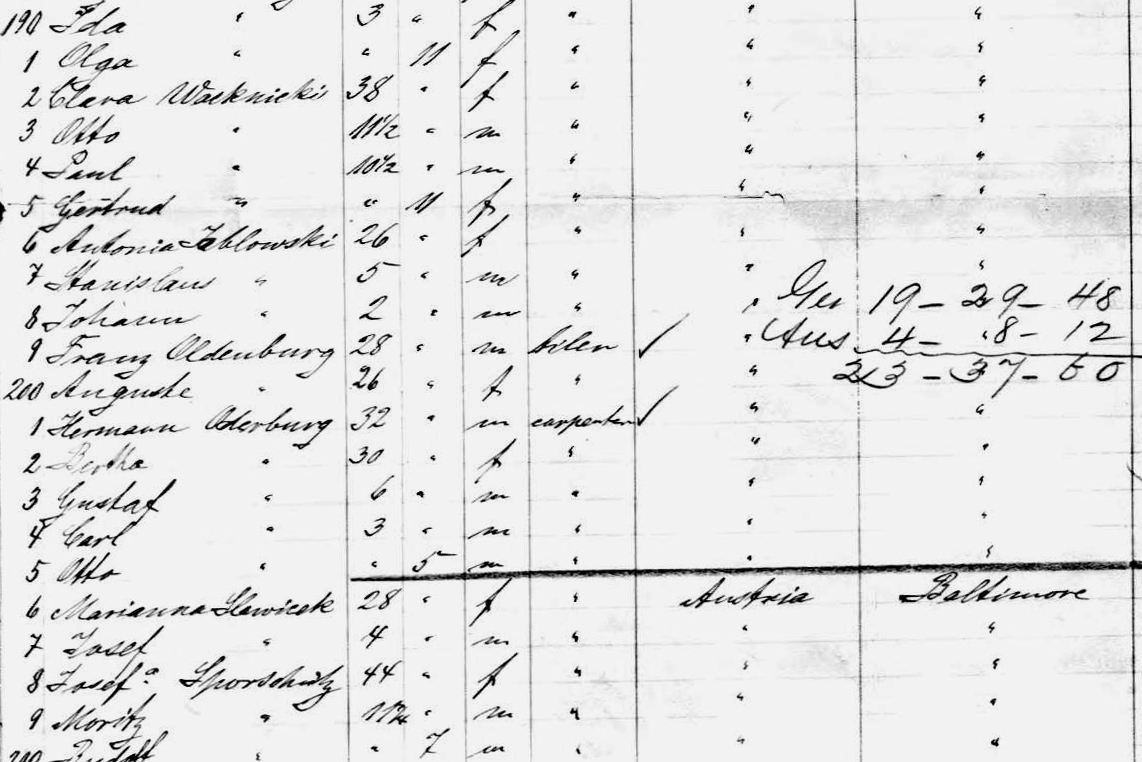 190 Ida " 3 " f " " "
1 Olga " " 11 f " " "
2 Clara Wacknicki 38 " f " " "
3 Otto " 11 1/2 " m " " "
4 Paul " 10 1/2 " m " " "
5 Gertrud " " 11 f " " "
6 Antonia Jablowski 26 " f " " "
7 Stanislaus " 5 " m " " "
8 Johann " 2 " m " " Ger 19 - 29 - 48
9 Franz Oldenburg 28 " m ✓ " Aus 4 - 8 - 12
200 Auguste " 26 " f " " 23 - 37 - 60
1 Hermann Oderburg 32 " m carpenter ✓ " "
2 Bertha " 30 " f " " "
3 Gustaf " 6 " m " " "
4 Carl " 3 " m " " "
5 Otto " " 5 m " " "
6 Marianna Slawicek 28 " f " Austria Baltimore
7 Josef " 4 " m " " "
8 Josefa Sporschitz 44 " f " " "
9 Moritz " " m " " "
210 Rudolf " " 7 m " " "